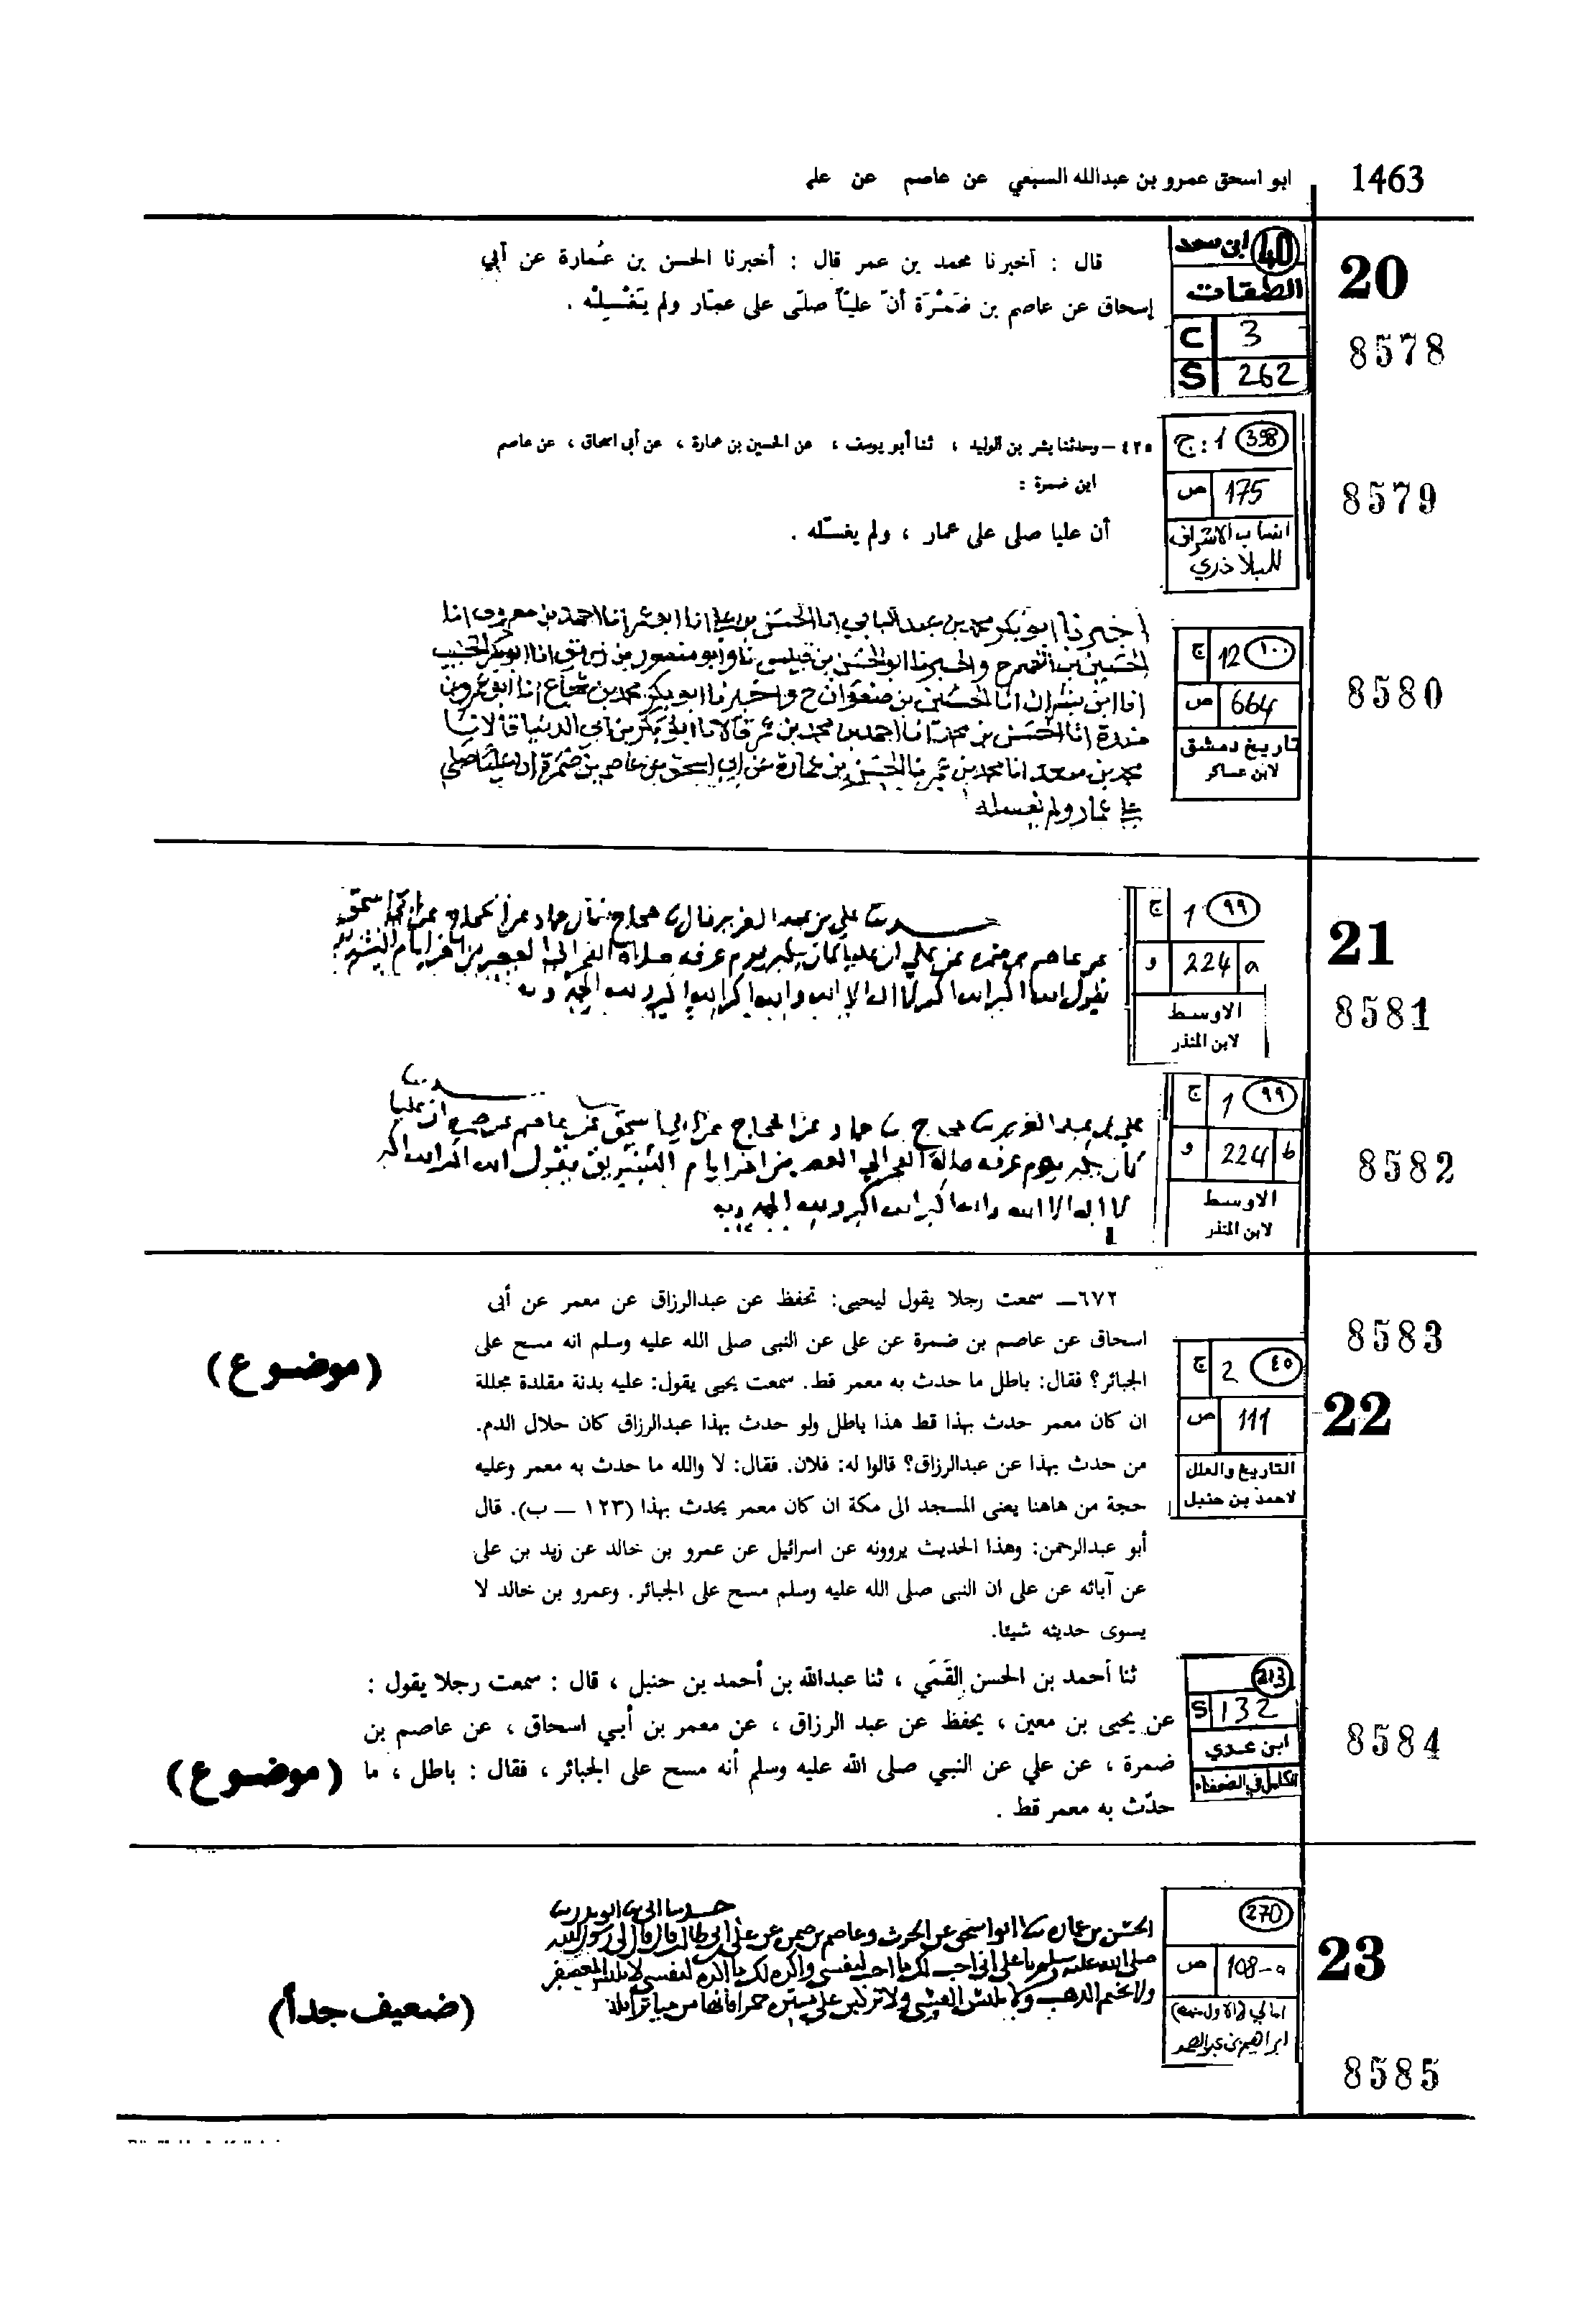 1463 ابو اسحق عمرو بن عبدالله السبيعي عن عاصم عن علي
20
8578
40 ابن سعد
الطبقات
C 3
S 262
قال : أخبرنا محمد بن عمر قال : أخبرنا الحسن بن عُمارة عن أبي
إسحاق عن عاصم بن ضَمْرَة أنّ عليّاً صلّى على عمّار ولم يَغْسِلْه .
8579
398 ج : 1
ص 175
انساب الاشراف
للبلاذري
٤٢٥ – وحدثنا بشر بن الوليد ، ثنا أبو يوسف ، عن الحسين بن عمارة ، عن أبي اسحاق ، عن عاصم
ابن ضمرة :
أن عليا صلى على عمار ، ولم يغسّله .
8580
١٠٠ 12 ج
ص 664
تاريخ دمشق
لابن عساكر
اخبرنا ابو بكر محمد بن عبد الباقي انا الحسن بن علي انا ابو عمر انا احمد بن معروف انا
الحسين بن الفهم ح واخبرنا ابو الحسن بن قبيس نا وابو منصور بن زريق انا ابو بكر الخطيب
انا ابن بشران انا الحسين بن صفوان ح واخبرنا ابو بكر محمد بن شجاع انا ابو عمرو بن
مندة انا الحسن بن محمد انا احمد بن محمد بن عمر قالا نا ابو بكر بن ابي الدنيا قالا نا
محمد بن سعد انا محمد بن عمر نا الحسن بن عمارة عن ابي اسحق عن عاصم بن ضمرة ان عليا صلى
على عمار ولم يغسله
21
8581
٩٩ 1 ج
a 224 و
الاوسط
لابن المنذر
علي بن عبد العزيز قال ثنا حجاج قال ثنا حماد عن الحجاج عن ابي اسحق
عن عاصم بن ضمرة عن علي ان عليا كان يكبر يوم عرفة صلاة الفجر الى العصر من اخر ايام التشريق
يقول الله اكبر الله اكبر لا اله الا الله والله اكبر الله اكبر ولله الحمد
8582
٩٩ 1 ج
b 224 و
الاوسط
لابن المنذر
علي بن عبد العزيز ثنا حجاج ثنا حماد عن الحجاج عن ابي اسحق عن عاصم عن ضمرة ان عليا
كان يكبر يوم عرفة صلاة الفجر الى العصر من اخر ايام التشريق يقول الله اكبر الله اكبر
لا اله الا الله والله اكبر الله اكبر ولله الحمد
22
8583
٤٥ 2 ج
ص 111
التاريخ والعلل
لاحمد بن حنبل
(موضوع)
٦٧٢ــ سمعت رجلا يقول ليحيى: تحفظ عن عبدالرزاق عن معمر عن أبى
اسحاق عن عاصم بن ضمرة عن على عن النبى صلى الله عليه وسلم انه مسح على
الجبائر؟ فقال: باطل ما حدث به معمر قط. سمعت يحيى يقول: عليه بدنة مقلدة مجللة
ان كان معمر حدث بهذا قط هذا باطل ولو حدث بهذا عبدالرزاق كان حلال الدم.
من حدث بهذا عن عبدالرزاق؟ قالوا له: فلان. فقال: لا والله ما حدث به معمر وعليه
حجة من هاهنا يعنى المسجد الى مكة ان كان معمر يحدث بهذا (١٢٣ ــ ب). قال
أبو عبدالرحمن: وهذا الحديث يروونه عن اسرائيل عن عمرو بن خالد عن زيد بن على
عن آبائه عن على ان النبى صلى الله عليه وسلم مسح على الجبائر. وعمرو بن خالد لا
يسوى حديثه شيئا.
8584
213
S 132
ابن عدي
الكامل في الضعفاء
(موضوع)
ثنا أحمد بن الحسن القَمّي ، ثنا عبدالله بن أحمد بن حنبل ، قال : سمعت رجلا يقول :
عن يحيى بن معين ، يحفظ عن عبد الرزاق ، عن معمر بن أبي اسحاق ، عن عاصم بن
ضمرة ، عن علي عن النبي صلى الله عليه وسلم أنه مسح على الجبائر ، فقال : باطل ، ما
حدّث به معمر قط .
23
8585
270
ص 108-a
ابراهيم بن عبد الصمد
(ضعيف جداً)
الحسن بن عمارة ثنا ابو اسحق عن الحرث وعاصم بن ضمرة عن علي بن ابي طالب قال قال لي رسول الله
صلى الله عليه وسلم يا علي اني احب لك ما احب لنفسي واكره لك ما اكره لنفسي لا تلبس المعصفر
ولا تختم الذهب ولا تلبس القسي ولا تركبن على ميثرة حمرا فانها من مياثر ابليس